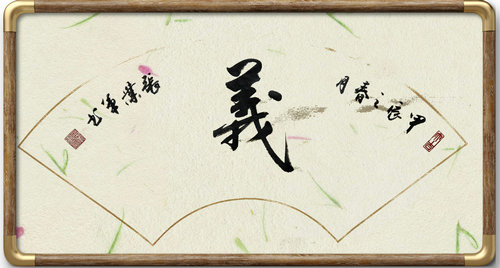 甲辰之春月
義
張業軍书